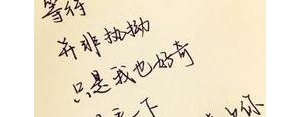 等待
并非执拗
只是我也好奇
一下
你